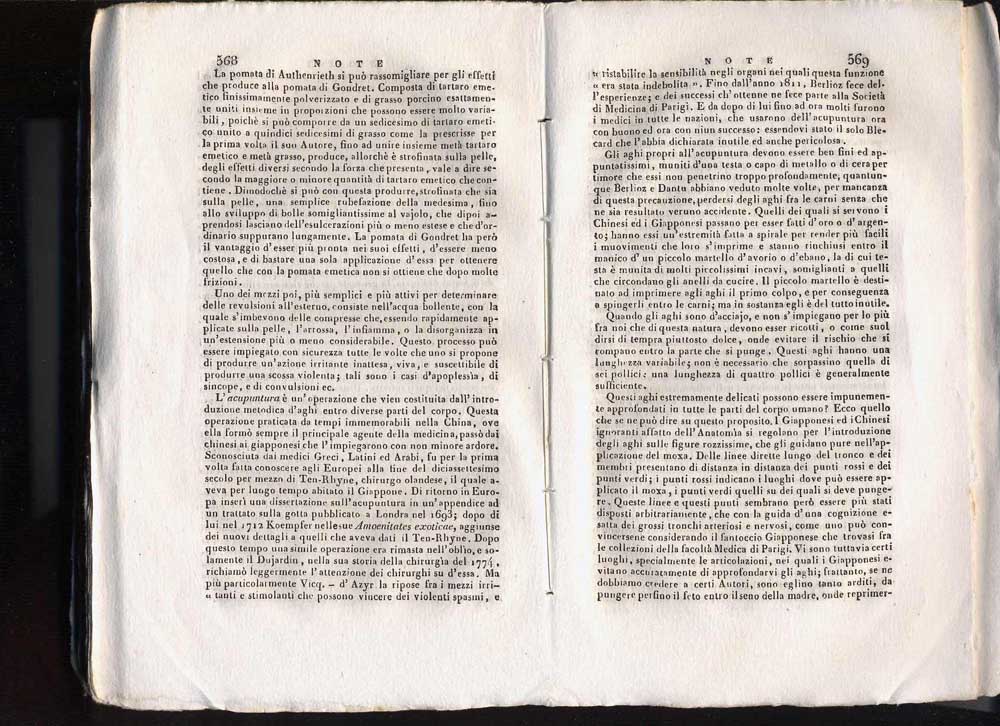 568
NOTE
La pomata di Authenrieth si può rassomigliare per gli effetti
che produce alla pomata di Gondret. Composta di tartaro eme-
tico finissimamente polverizzato e di grasso porcino esattamen-
te uniti insieme in proporzioni che possono essere molto varia-
bili, poichè si può comporre da un sedicesimo di tartaro emeti-
co unito a quindici sedicesimi di grasso come la prescrisse per
la prima volta il suo Autore, fino ad unire insieme metà tartaro
emetico e metà grasso, produce, allorchè è strofinata sulla pelle,
degli effetti diversi secondo la forza che presenta, vale a dire se-
condo la maggiore o minore quantità di tartaro emetico che con-
tiene. Dimodochè si può con questa produrre, strofinata che sia
sulla pelle, una semplice rubefazione della medesima, fino
allo sviluppo di bolle somigliantissime al vajolo, che dipoi a-
prendosi lasciano dell'esulcerazioni più o meno estese e che d'or-
dinario suppurano lungamente. La pomata di Gondret ha però
il vantaggio d'esser più pronta nei suoi effetti, d'essere meno
costosa, e di bastare una sola applicazione d'essa per ottenere
quello che con la pomata emetica non si ottiene che dopo molte
frizioni.
Uno dei mezzi poi, più semplici e più attivi per determinare
delle revulsioni all'esterno, consiste nell'acqua bollente, con la
quale s'imbevono delle compresse che, essendo rapidamente ap-
plicate sulla pelle, l'arrossa, l'infiamma, o la disorganizza in
un'estensione più o meno considerabile. Questo processo può
essere impiegato con sicurezza tutte le volte che uno si propone
di produrre un'azione irritante inattesa, viva, e suscettibile di
produrre una scossa violenta; tali sono i casi d'apoplessìa, di
sincope, e di convulsioni ec.
L'acupuntura è un'operazione che vien costituita dall'intro-
duzione metodica d'aghi entro diverse parti del corpo. Questa
operazione praticata da tempi immemorabili nella China, ove
ella formò sempre il principale agente della medicina, passò dai
chinesi ai giapponesi che l'impiegarono con non minore ardore.
Sconosciuta dai medici Greci, Latini ed Arabi, fu per la prima
volta fatta conoscere agli Europei alla fine del diciassettesimo
secolo per mezzo di Ten-Rhyne, chirurgo olandese, il quale a-
veva per lungo tempo abitato il Giappone. Di ritorno in Euro-
pa inserì una dissertazione sull'acupuntura in un'appendice ad
un trattato sulla gotta pubblicato a Londra nel 1693; dopo di
lui nel 1712 Koempfer nelle sue Amoenitates exoticae, aggiunse
dei nuovi dettagli a quelli che aveva dati il Ten-Rhyne. Dopo
questo tempo una simile operazione era rimasta nell'oblìo, e so-
lamente il Dujardin, nella sua storia della chirurgìa del 1774,
richiamò leggermente l'attenzione dei chirurghi su d'essa. Ma
più particolarmente Vicq. - d'Azyr la ripose fra i mezzi irri-
« tanti e stimolanti che possono vincere dei violenti spasmi, e
569
NOTE
« ristabilire la sensibilità negli organi nei quali questa funzione
« era stata indebolita ». Fino dall'anno 1811, Berlioz fece del-
l'esperienze; e dei successi ch'ottenne ne fece parte alla Società
di Medicina di Parigi. E da dopo di lui fino ad ora molti furono
i medici in tutte le nazioni, che usarono dell'acupuntura ora
con buono ed ora con niun successo: essendovi stato il solo Ble-
card che l'abbia dichiarata inutile ed anche pericolosa.
Gli aghi propri all'acupuntura devono essere ben fini ed ap-
puntatissimi, muniti d'una testa o capo di metallo o di cera per
timore che essi non penetrino troppo profondamente, quantun-
que Berlioz e Dantu abbiano veduto molte volte, per mancanza
di questa precauzione, perdersi degli aghi fra le carni senza che
ne sia resultato veruno accidente. Quelli dei quali si servono i
Chinesi ed i Giapponesi passano per esser fatti d'oro o d'argen-
to; hanno essi un'estremità fatta a spirale per render più facili
i muovimenti che loro s'imprime e stanno rinchiusi entro il
manico d'un piccolo martello d'avorio o d'ebano, la di cui te-
sta è munita di molti piccolissimi incavi, somiglianti a quelli
che circondano gli anelli da cucire. Il piccolo martello è desti-
nato ad imprimere agli aghi il primo colpo, e per conseguenza
a spingerli entro le carni; ma in sostanza egli è del tutto inutile.
Quando gli aghi sono d'acciajo, e non s'impiegano per lo più
fra noi che di questa natura, devono esser ricotti, o come suol
dirsi di tempra piuttosto dolce, onde evitare il rischio che si
rompano entro la parte che si punge. Questi aghi hanno una
lunghezza variabile; non è necessario che sorpassino quella di
sei pollici: una lunghezza di quattro pollici è generalmente
sufficiente.
Questi aghi estremamente delicati possono essere impunemen-
te approfondati in tutte le parti del corpo umano? Ecco quello
che se ne può dire su questo proposito. I Giapponesi ed i Chinesi
ignoranti affatto dell'Anatomìa si regolano per l'introduzione
degli aghi sulle figure rozzissime, che gli guidano pure nell'ap-
plicazione del moxa. Delle linee dirette lungo del tronco e dei
membri presentano di distanza in distanza dei punti rossi e dei
punti verdi; i punti rossi indicano i luoghi dove può essere ap-
plicato il moxa, i punti verdi quelli su dei quali si deve punge-
re. Queste linee e questi punti sembrano però essere più stati
disposti arbitrariamente, che con la guida d'una cognizione e-
satta dei grossi tronchi arteriosi e nervosi, come uno può con-
vincersene considerando il fantoccio Giapponese che trovasi fra
le collezioni della facoltà Medica di Parigi. Vi sono tuttavia certi
luoghi, specialmente le articolazioni, nei quali i Giapponesi e-
vitano accuratamente di approfondarvi gli aghi; frattanto, se ne
dobbiamo credere a certi Autori, sono eglino tanto arditi, da
pungere perfino il feto entro il seno della madre, onde reprimer-